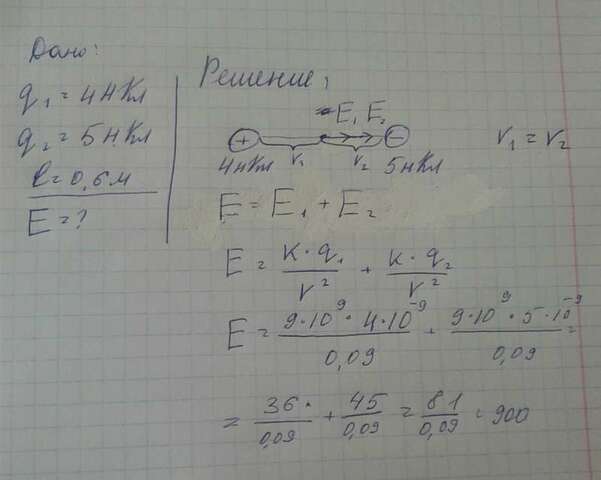 Дано:
q₁ = 4 нКл
q₂ = 5 нКл
l = 0,6 м
E = ?
Решение:
E₁ E₂
+ −
r₁ r₂
4 нКл 5 нКл
r₁ = r₂
E = E₁ + E₂
E = k·q₁/r² + k·q₂/r²
E = 9·10⁹·4·10⁻⁹/0,09 + 9·10⁹·5·10⁻⁹/0,09 =
= 36·/0,09 + 45/0,09 = 81/0,09 = 900